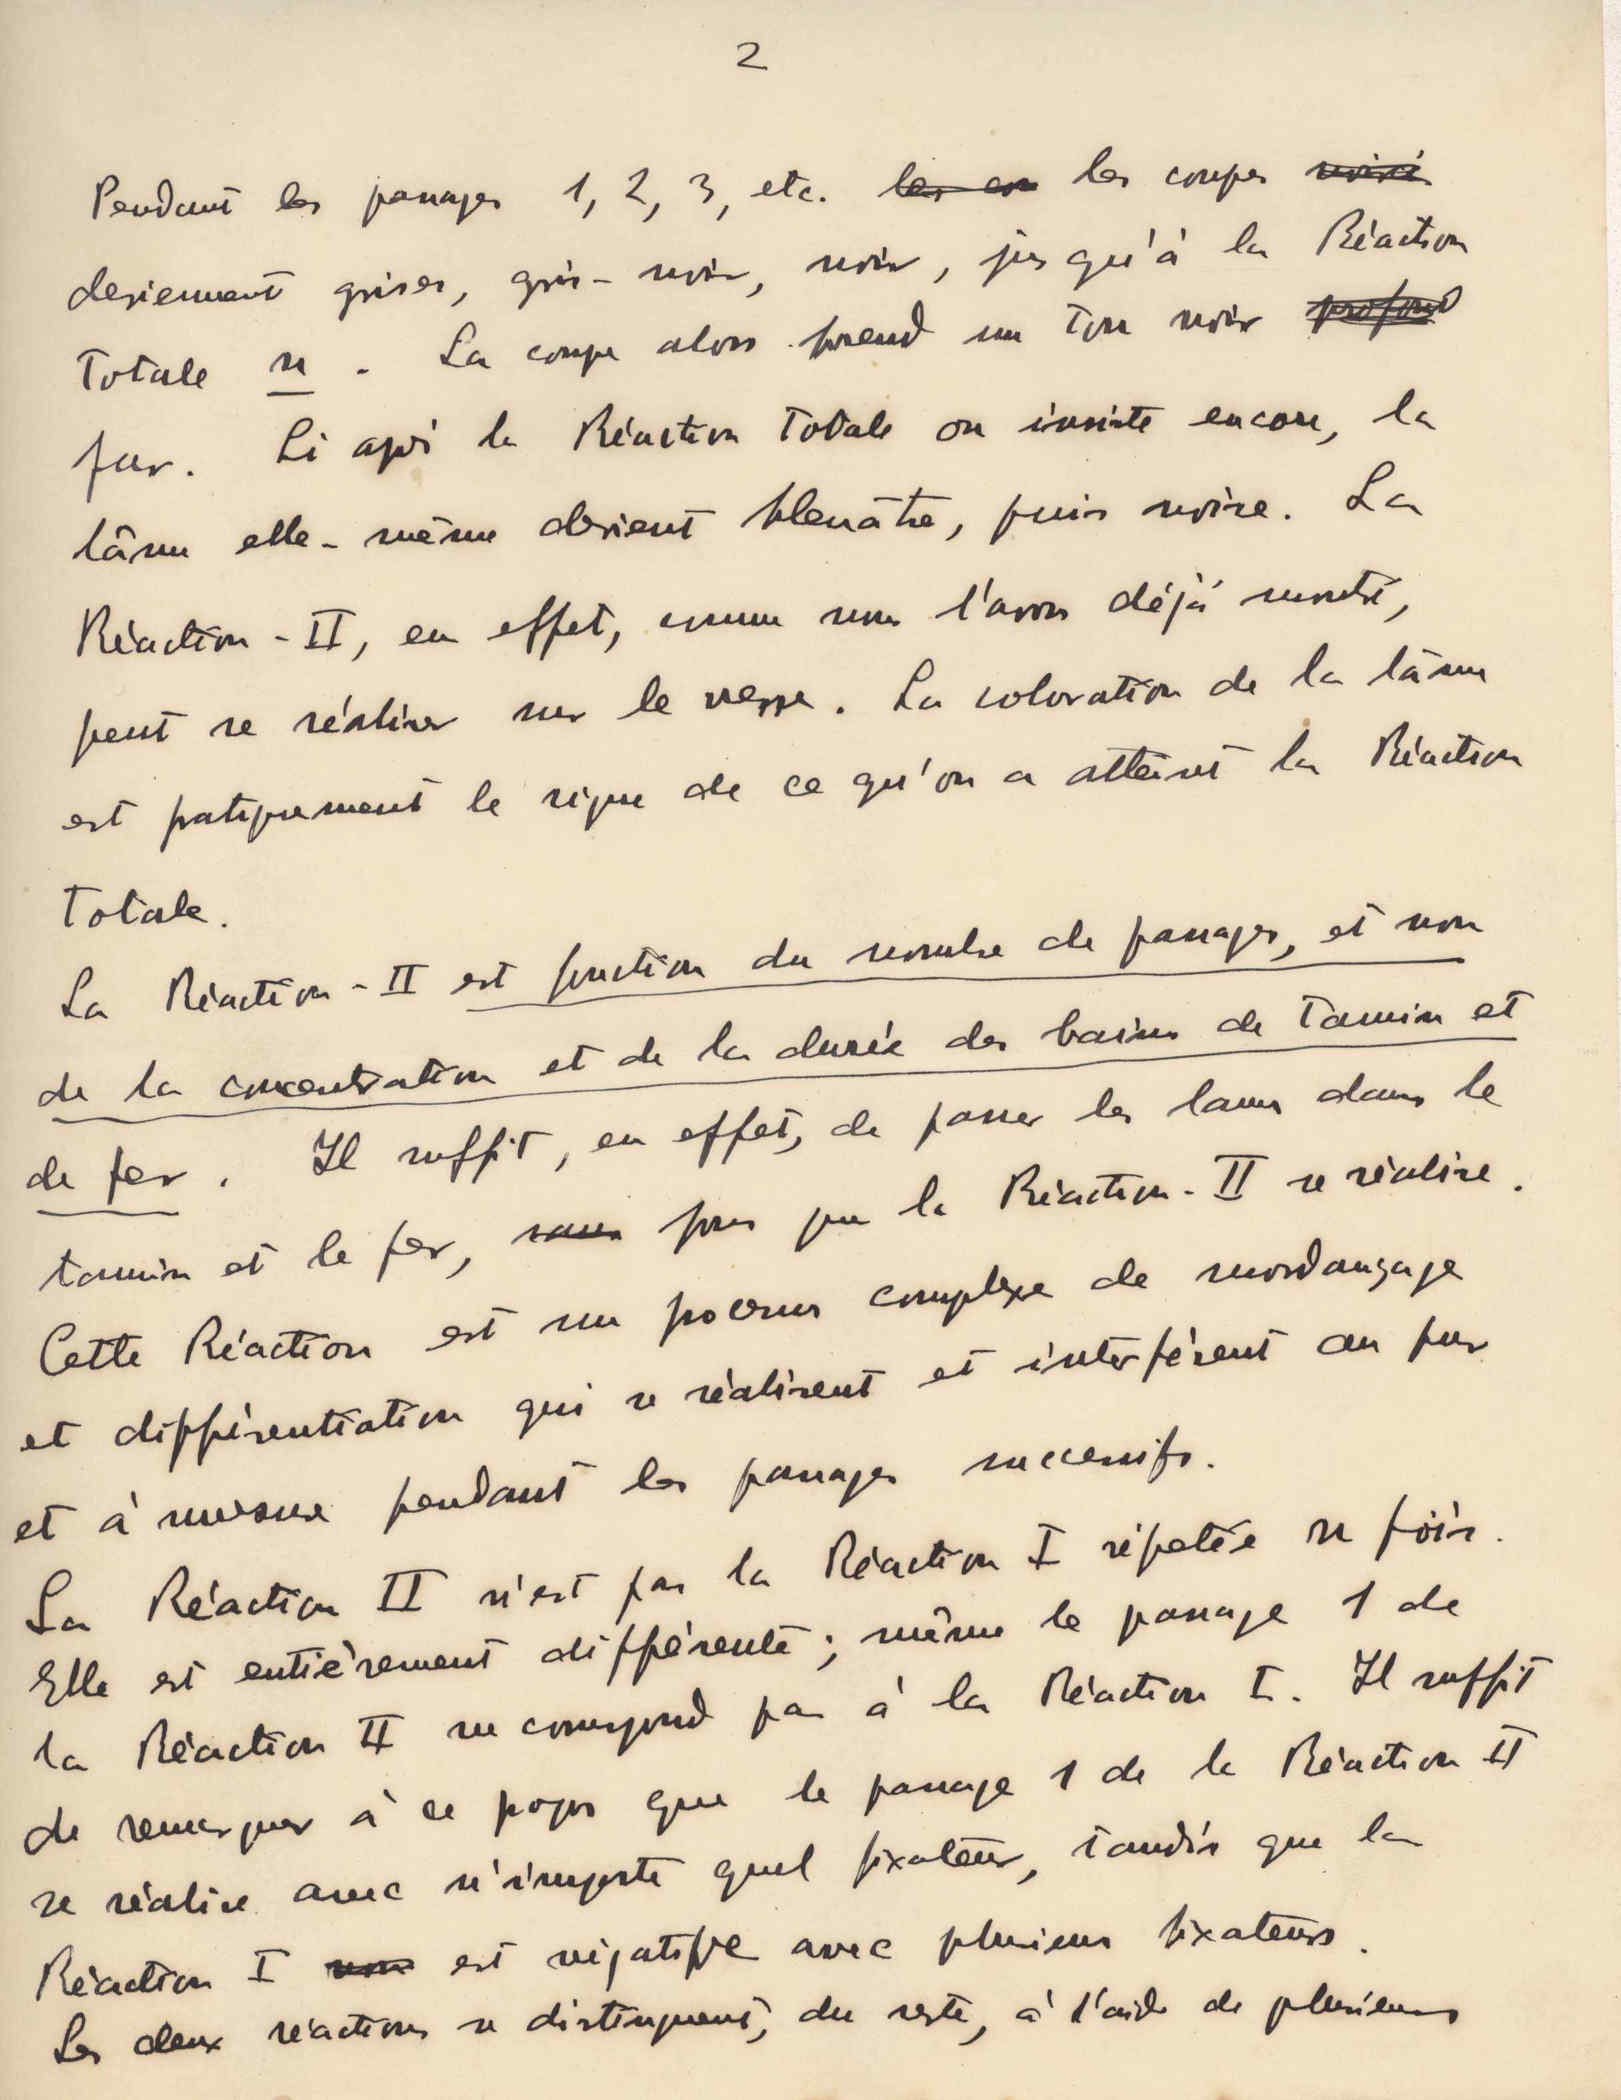 2
Pendant les passages 1, 2, 3, etc. les co les coupes
deviennent grises, gris-noir, noir, jusqu'à la Réaction
Totale n. La coupe alors prend un ton noir profond
pur. Si après la Réaction Totale on insiste encore, la
lâme elle-même devient bleuâtre, puis noire. La
Réaction-II, en effet, comme nous l'avons déjà montré,
peut se réaliser sur le verre. La coloration de la lâme
est pratiquement le signe de ce qu'on a atteint la Réaction
Totale.
La Réaction-II est fonction du nombre de passages, et non
de la concentration et de la durée des bains de tannin et
de fer. Il suffit, en effet, de passer les lames dans le
tannin et le fer, sans pour que la Réaction-II se réalise.
Cette Réaction est un processus complexe de mordançage
et différentiation qui se réalisent et interfèrent au fur
et à mesure pendant les passages successifs.
La Réaction II n'est pas la Réaction I répétée n fois.
Elle est entièrement différente; même le passage 1 de
la Réaction II ne correspond pas à la Réaction I. Il suffit
de remarquer à ce propos que le passage 1 de la Réaction II
se réalise avec n'importe quel fixateur, tandis que la
Réaction I non est négative avec plusieurs fixateurs.
Les deux réactions se distinguent, du reste, à l'aide de plusieurs